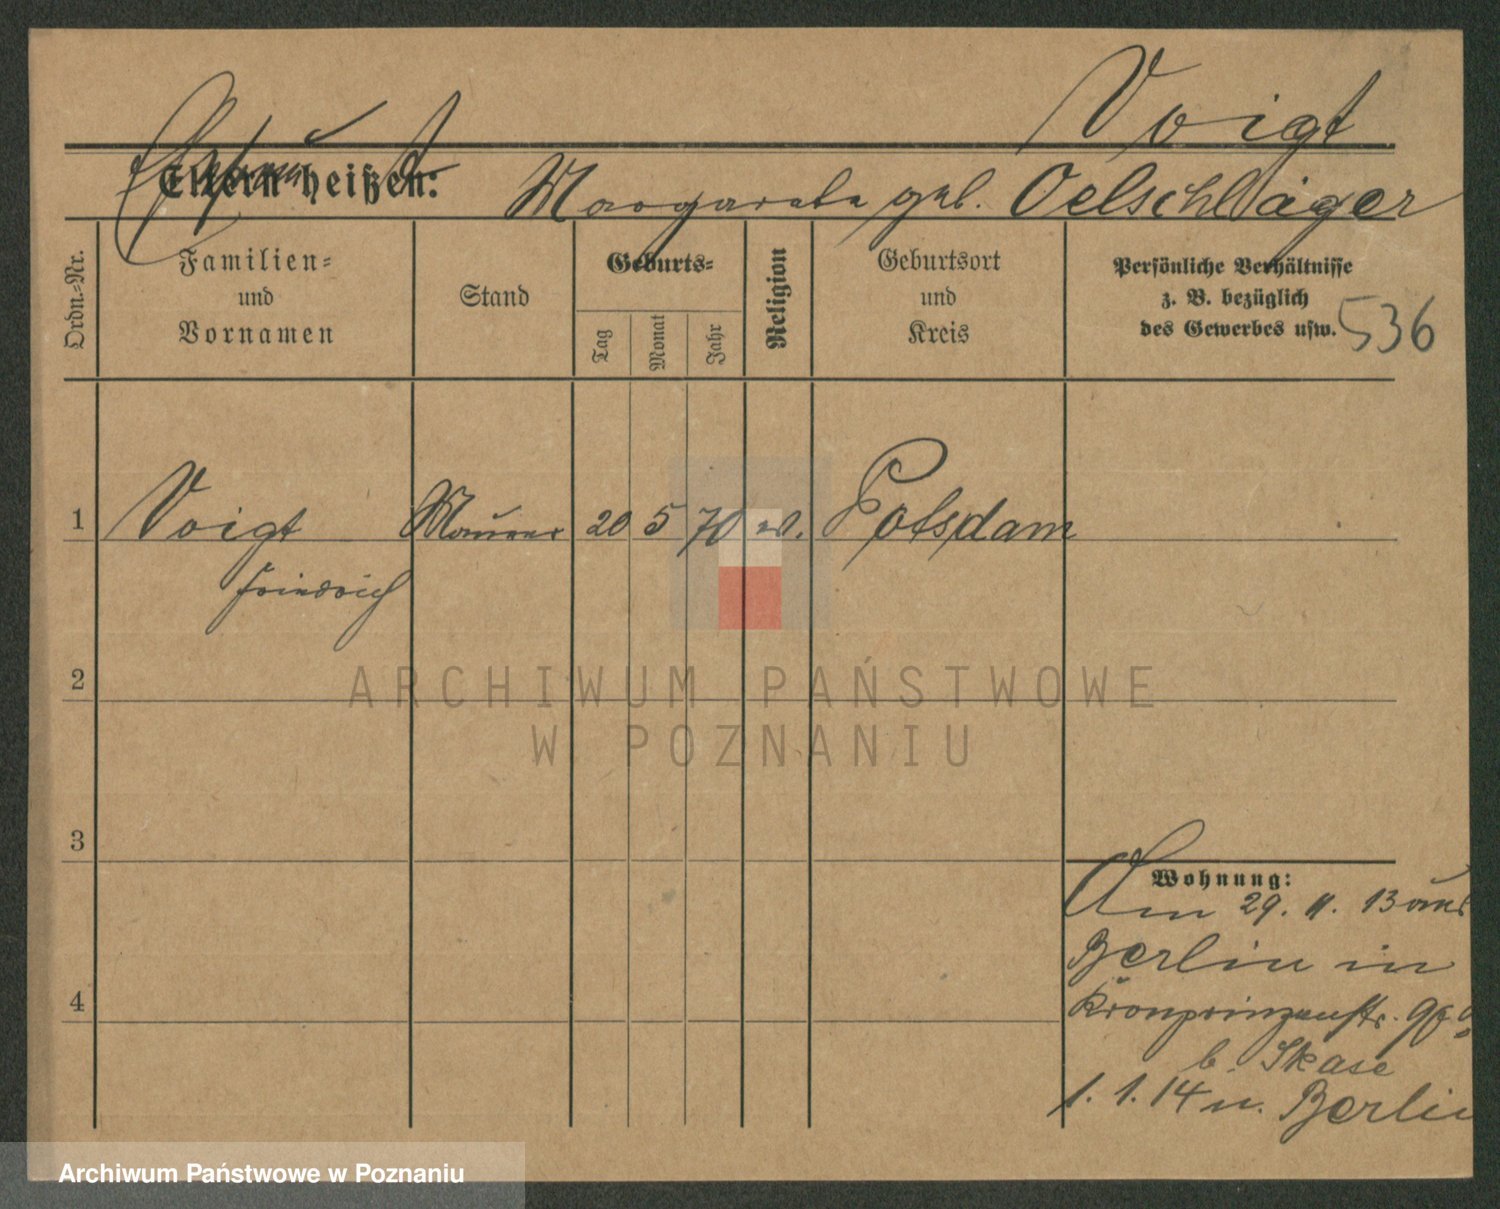 Voigt
Eltern heißen:
Margarete geb. Oelschläger
Ordn.=Nr.
Familien=
und
Vornamen
Stand
Geburts=
Tag
Monat
Jahr
Religion
Geburtsort
und
Kreis
Persönliche Verhältnisse
z. B. bezüglich
des Gewerbes usw.
536
1 Voigt Maurer 20 5 70 ev. Potsdam
Friedrich
2
ARCHIWUM PAŃSTWOWE
W POZNANIU
3
Wohnung:
Am 29. 11. 13
Berlin in
Kronprinzenstr.
b. Skase
4
1. 1. 14 n. Berlin
Archiwum Państwowe w Poznaniu